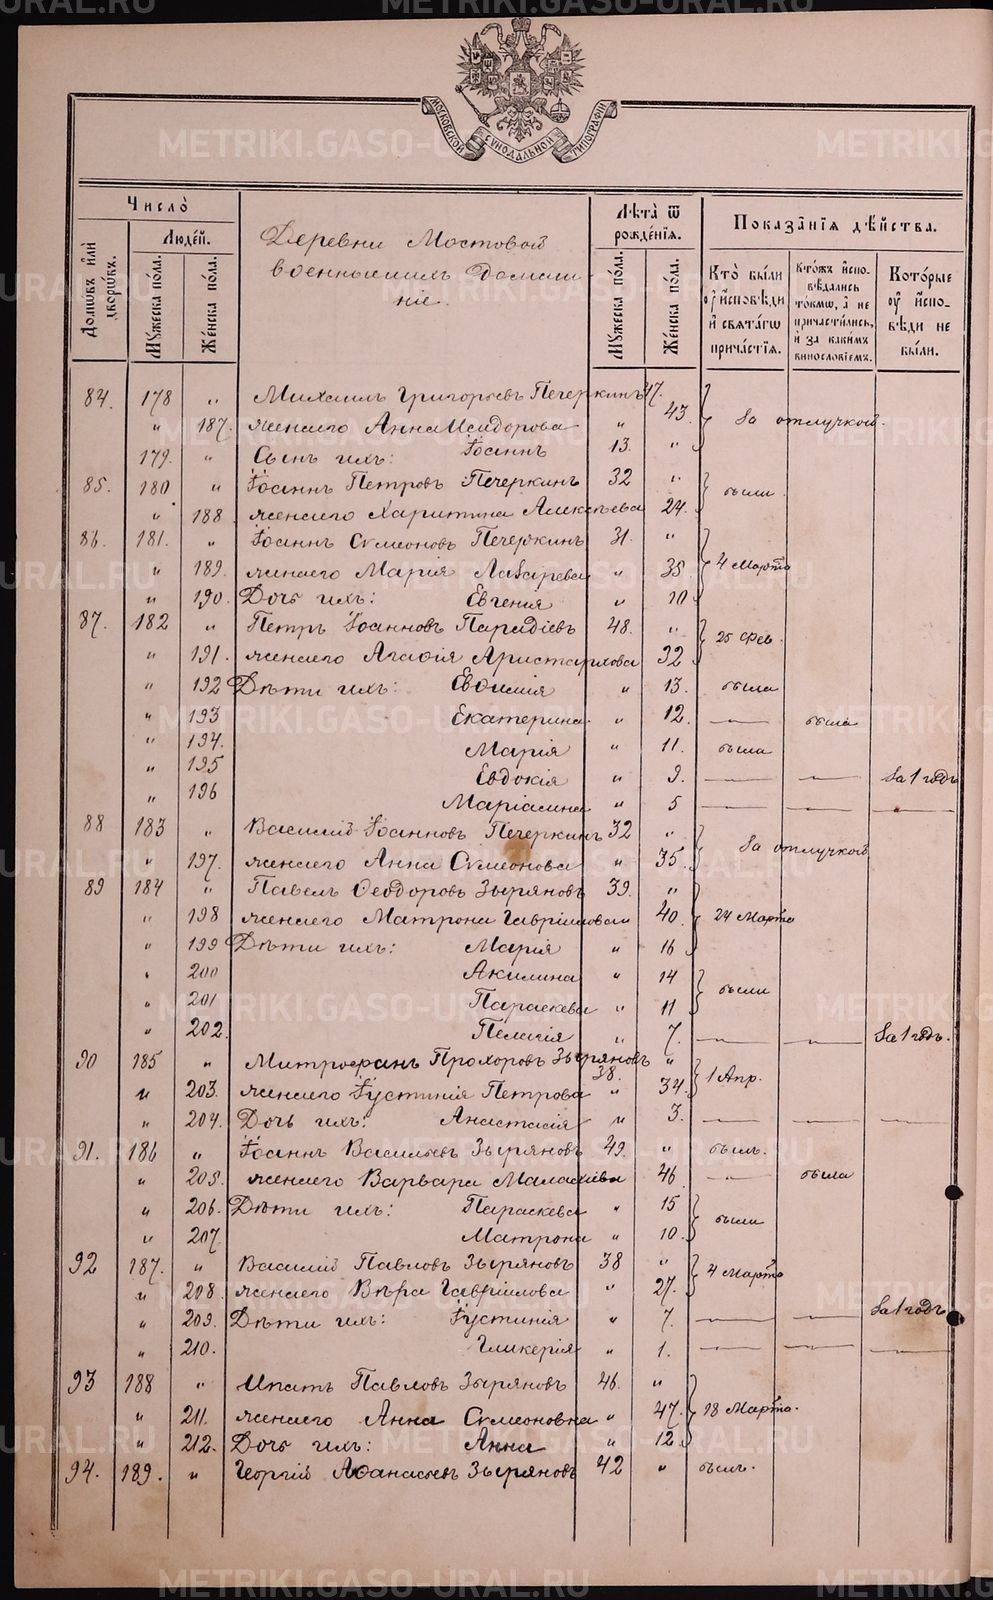 METRIKI.GASO-URAL.RU
МОСКОВСКОЙ СѴНОДАЛЬНОЙ ТИПОГРАФІИ
Число̀
Домѡвъ и҆лѝ дворѡ́въ.
Люде́й.
Мꙋ́жеска по́ла.
Же́нска по́ла.
Деревни Мостовой
военныхъ Домаш-
ніе.
Лѣ́та ѿ рожде́нїѧ.
Мꙋ́жеска по́ла.
Же́нска по́ла.
Показа̑нїѧ дѣ́йства.
Кто̀ бы́ли ᲂу҆ и҆́сповѣди и҆ свѧта́гѡ прича́стїѧ.
Кто́жъ и҆спо- вѣ́дались то́кмѡ, а҆ не причасти́лись, и҆ за каки́мъ винослові́емъ.
Кото́рые ᲂу҆ и҆́спо- вѣди не бы́ли.
84. 178 " Михаилъ Григорьевъ Печеркинъ 47.
" 187. жена его Анна Исидорова " 43. За отлучкой.
179. " Сынъ ихъ: Іоаннъ 13. "
85. 180 " Іоаннъ Петровъ Печеркинъ 32 " были
" 188. жена его Харитина Алексѣева 24.
86. 181. " Іоаннъ Сѵмеоновъ Печеркинъ 31. "
" 189. жена его Марія Лазарева " 35 4 Марта
" 190. Дочь ихъ: Евгенія " 10
87. 182 " Петръ Іоанновъ Паладіевъ 48. " 25 Фев.
" 191. жена его Агафія Аристархова 32
" 192 Дѣти ихъ: Евфимія " 13. была
" 193 Екатерина " 12. — была
" 194. Марія " 11. была
" 195 Евдокія " 9. — — За 1 годъ
" 196 Маріамна " 5 — — "
88 183 " Василій Іоанновъ Печеркинъ 32 " За отлучкой
" 197. жена его Анна Сѵмеонова " 35.
89 184 " Павелъ Ѳеодоровъ Зыряновъ 39. "
" 198 жена его Матрона Гавріилова 40. 24 Марта
" 199 Дѣти ихъ: Марія " 16
" 200 Акилина " 14 были
" 201 Параскева " 11
" 202. Пелагія " 7. — — За 1 годъ.
90 185 " Митрофанъ Прохоровъ Зыряновъ 38. " 1 Апр.
" 203. жена его Іустинія Петрова " 34.
" 204. Дочь ихъ: Анастасія " 3. — — —
91. 186 " Іоаннъ Васильевъ Зыряновъ 49. " былъ.
" 205. жена его Варвара Малахіева 46 — была
" 206. Дѣти ихъ: Параскева " 15 были
" 207. Матрона " 10.
92 187. " Василій Павловъ Зыряновъ 38 " 4 Марта
" 208. жена его Вѣра Гавріилова " 27.
" 209. Дѣти ихъ: Іустинія " 7. — — За 1 годъ
" 210. Гликерія " 1. — — —
93 188 " Ипатъ Павловъ Зыряновъ 46. "
" 211. жена его Анна Сѵмеоновна " 47. 18 Марта.
" 212. Дочь ихъ: Анна " 12.
94. 189. " Георгій Аѳанасьевъ Зыряновъ 42 " былъ.